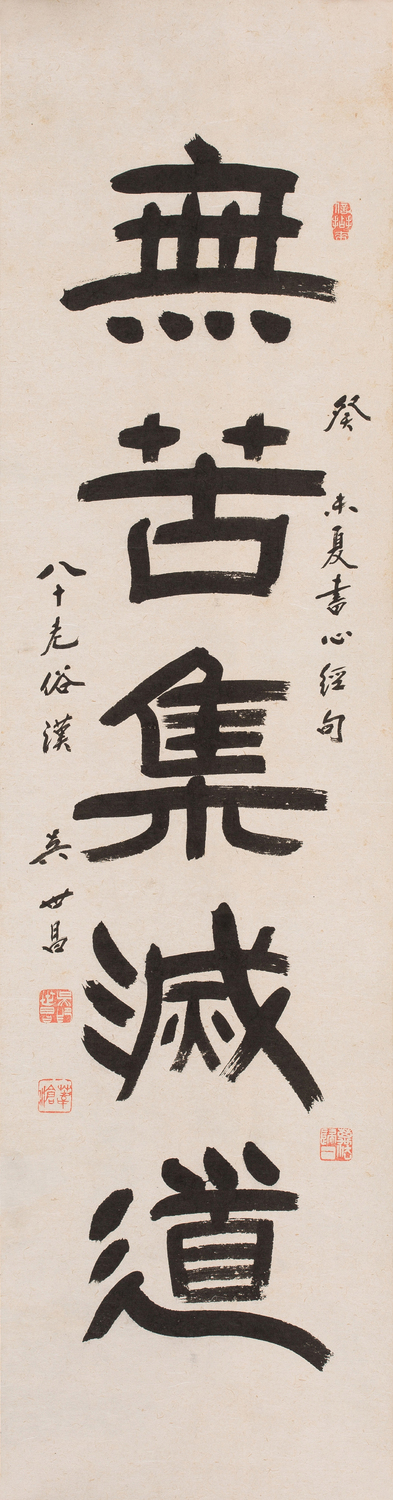 癸未夏書心經句
無苦集滅道
八十老俗漢
吳世昌